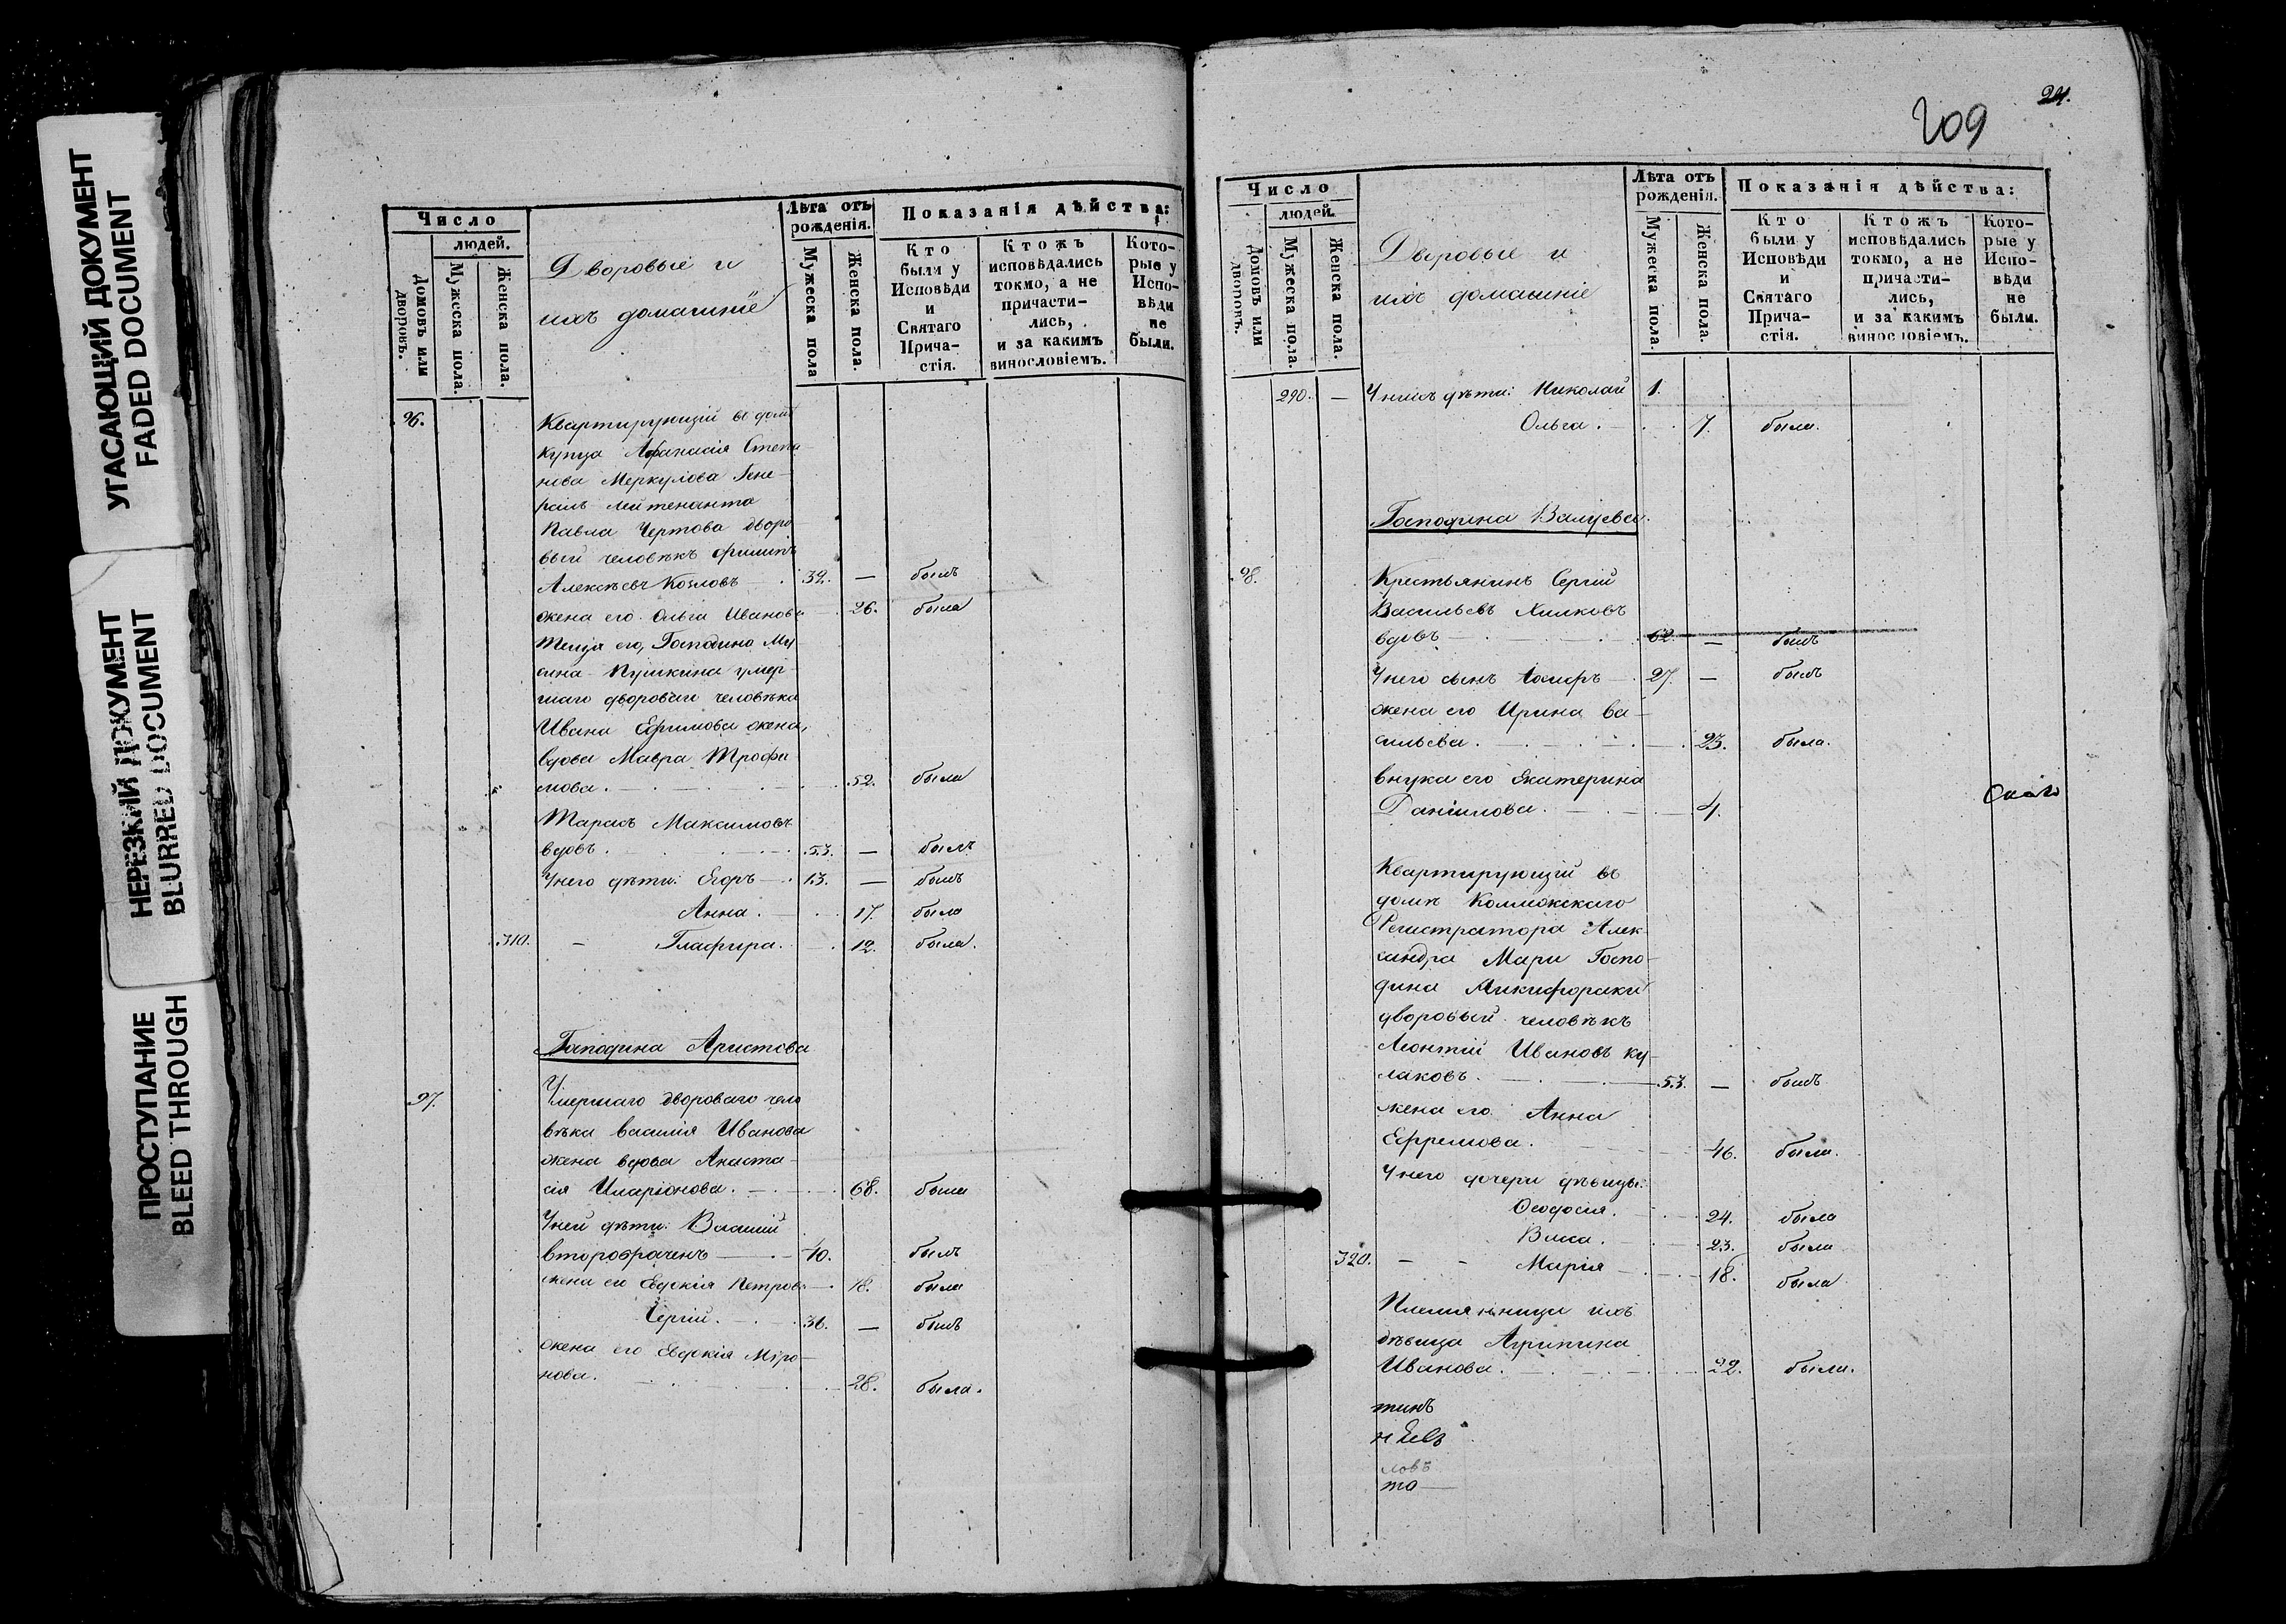 УГАСАЮЩИЙ ДОКУМЕНТ
FADED DOCUMENT
НЕРЕЗКИЙ ДОКУМЕНТ
BLURRED DOCUMENT
ПРОСТУПАНИЕ
BLEED THROUGH
Число
людей.
Домовъ или дворовъ.
Мужеска пола.
Женска пола.
Дворовые и
ихъ домашніе
Лѣта отъ рожденія.
Мужеска пола
Женска пола.
Показанія дѣйства:
Кто были у Исповѣди и Святаго Прича-стія.
Ктожъ исповѣдались токмо, а не причасти-лись, и за какимъ винословіемъ.
Кото-рые у Испо-вѣди не были.
96. Квартирующій въ домѣ
купца Афанасія Степа
нова Меркулова Гене-
ралъ Лейтенанта
Павла Чертова дворо
вый человѣкъ Филипъ
Алексѣевъ Козловъ 39. — былъ
жена его Ольга Иванова 26. была
Теща его, Господина Му
сина Пушкина умер
шаго дворовый человѣка
Ивана Ефимова жена,
вдова Мавра Трофи
мова. 52. была
Тарасъ Максимовъ
вдовъ. 53. — былъ
У него дѣти: Егоръ 13. — былъ
Анна. 17. была
310. — Глафира. 12. была.
Господина Аристова
97. Умершаго дворового чело
вѣка Василія Иванова
жена вдова Анаста-
сія Иларіонова. 68. была
У ней дѣти: Василій
второбраченъ 40. былъ
жена его Евдокія Петрова 18. была
Сергій. 36. — былъ
жена его Евдокія Миро-
нова. 28. была.
209
24.
Число
людей.
Домовъ или дворовъ.
Мужеска пола.
Женска пола.
Дворовые и
ихъ домашніе
Лѣта отъ рожденія.
Мужеска пола.
Женска пола.
Показанія дѣйства:
Кто были у Исповѣди и Святаго Прича-стія.
Ктожъ исповѣдались токмо, а не причасти-лись, и за какимъ винословіемъ.
Кото-рые у Испо-вѣди не были.
290. — У нихъ дѣти: Николай 1.
Ольга. 7. была.
Господина Валуева.
98. Крестьянинъ Сергій
Васильевъ Хилковъ
вдовъ 62. — былъ
У него сынъ Іосифъ 27. — былъ
жена его Ирина Ва-
сильева. 23. была.
внука его Екатерина
Данилова. 4.
Квартирующій въ
домѣ Коллежскаго
Регистратора Алек
сандра Мари Госпо-
дина Никифораки
дворовый человѣкъ
Леонтій Ивановъ Ку-
лаковъ. 53. — былъ
жена его Анна
Ефремова. 46. была.
У него дочери дѣвицы:
Ѳеодосія. 24. была
Васса. 23. была
320. — — Марія 18. была
Племянница ихъ
дѣвица Агрипина
Иванова. 22. была.
тинъ
ловъ
то